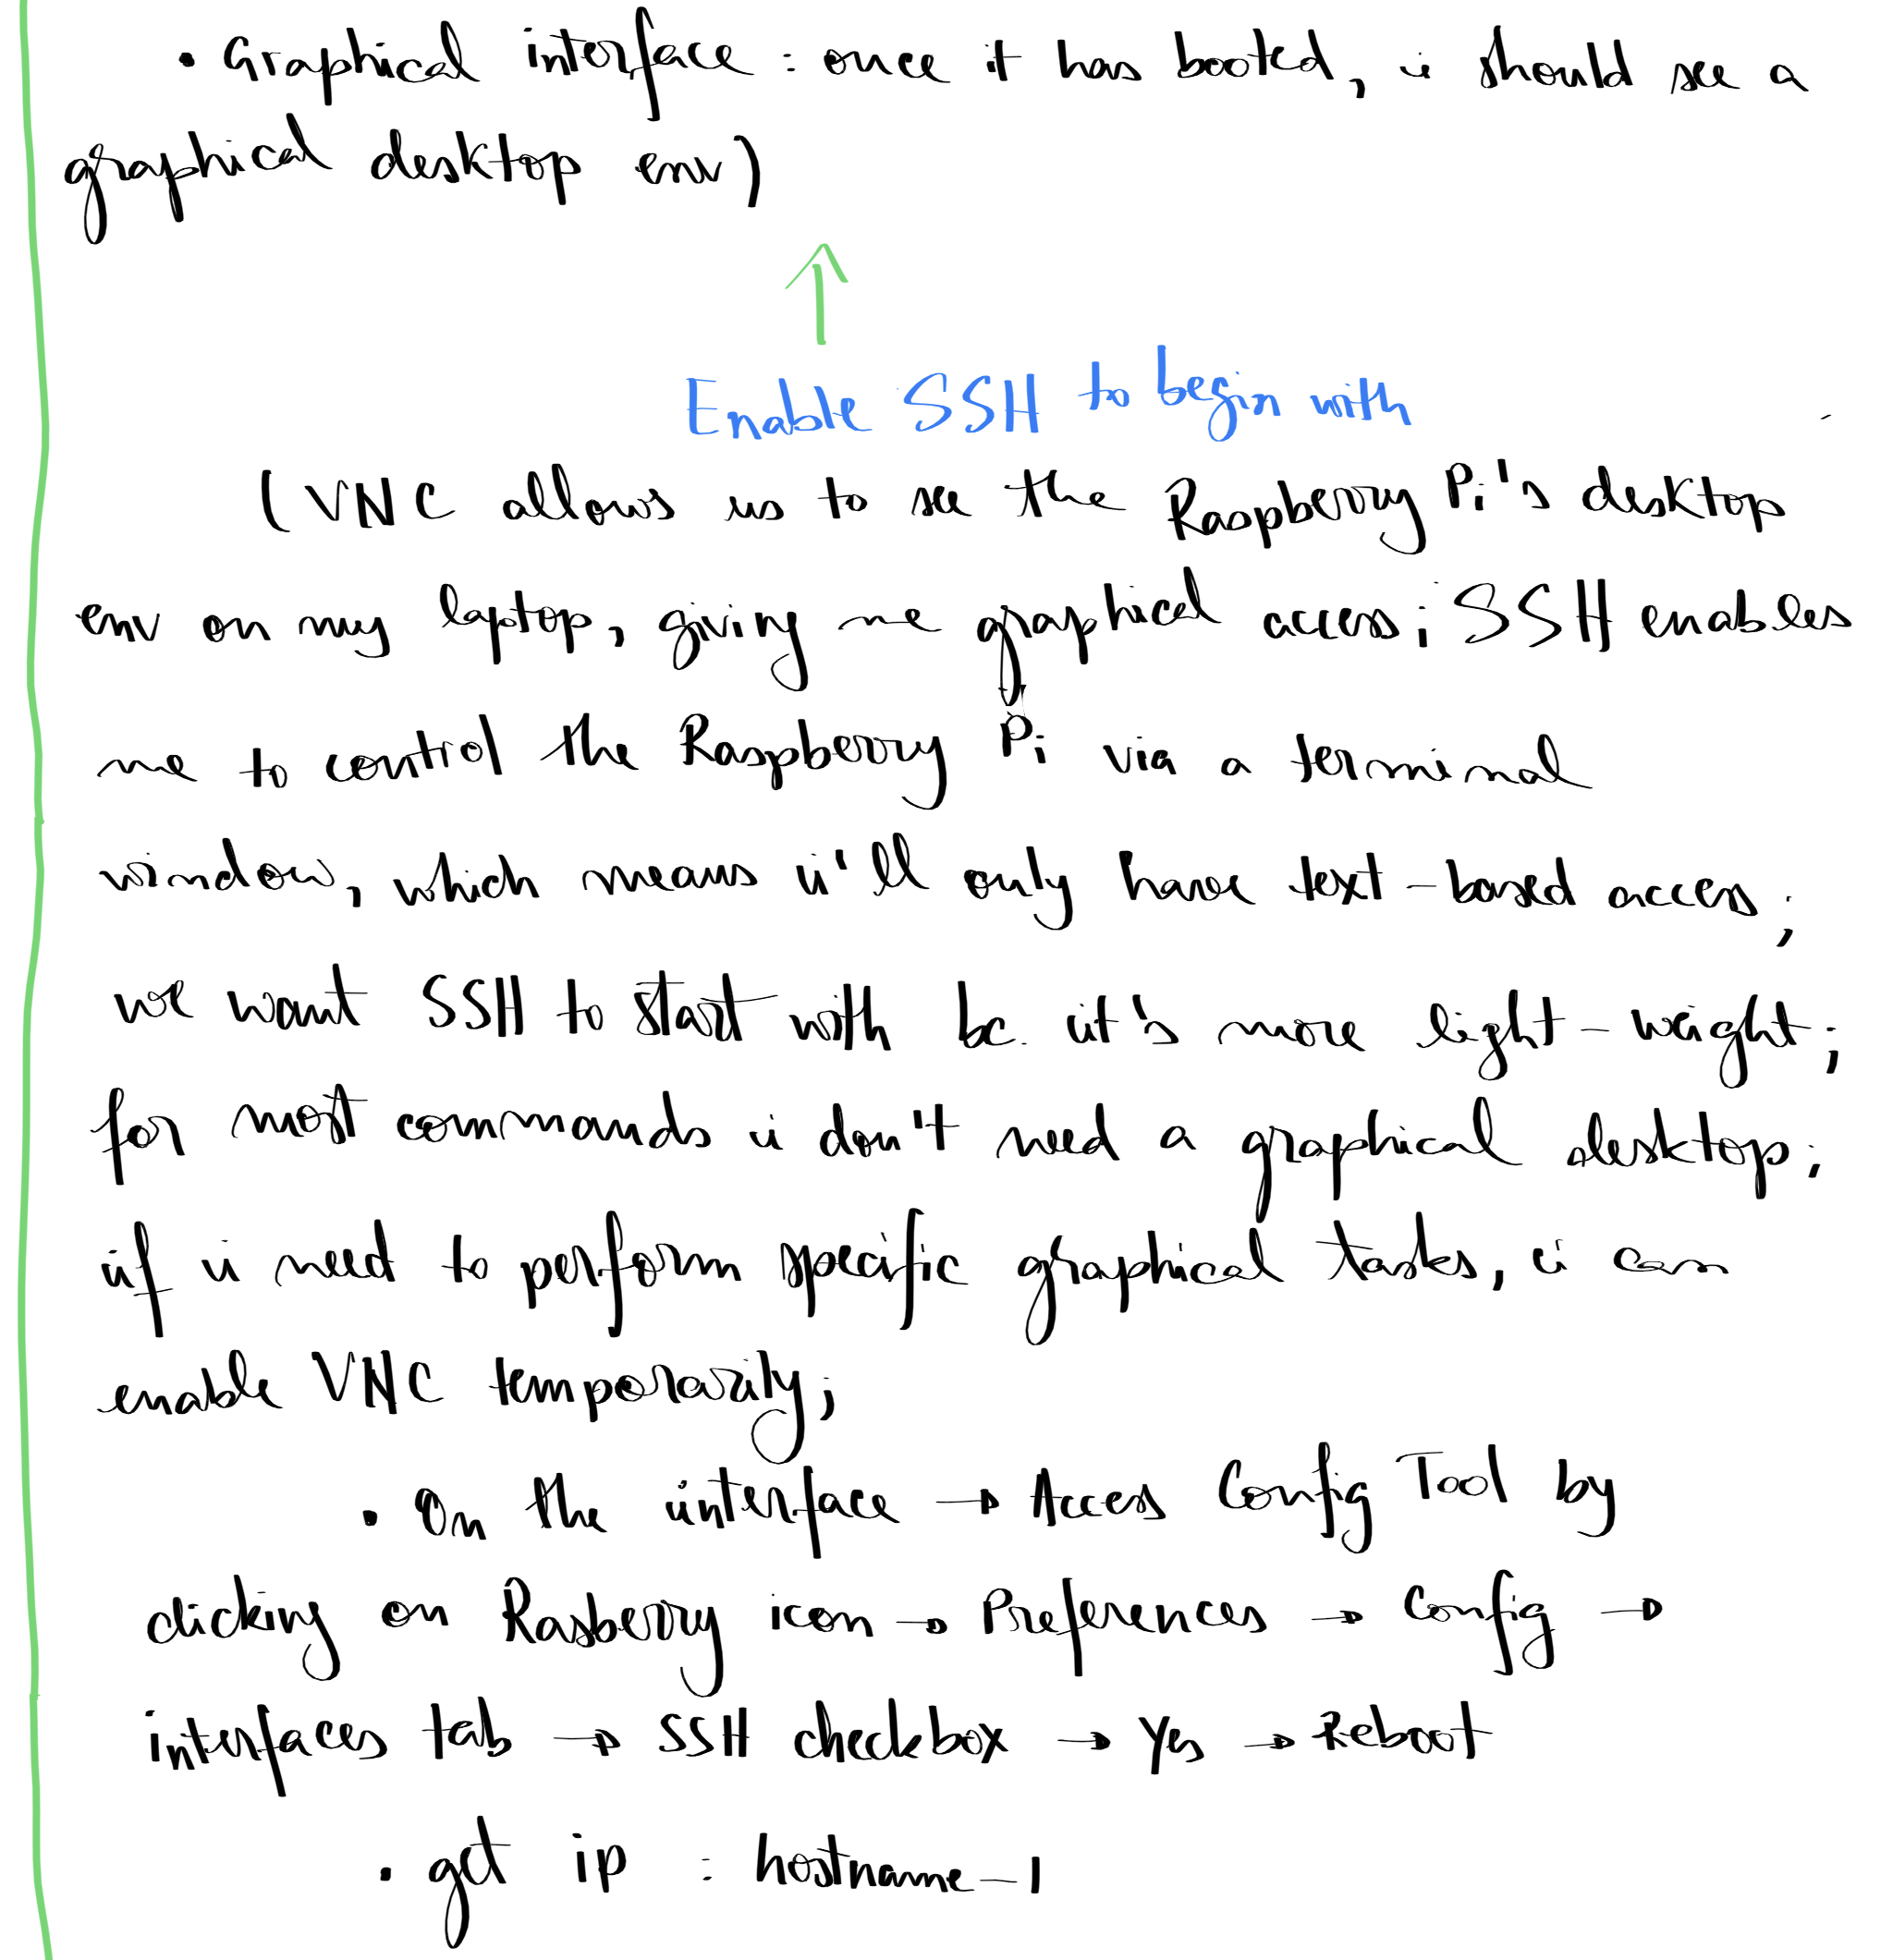 • Graphical interface : once it has booted, i should see a
graphical desktop env)
↑
Enable SSH to begin with
(VNC allows us to see the Raspberry Pi's desktop
env on my laptop, giving me graphical access; SSH enables
me to control the Raspberry Pi via a terminal
window, which means i'll only have text-based access;
we want SSH to start with bc. it's more light-weight;
for most commands i don't need a graphical desktop;
if i need to perform specific graphical tasks, i can
enable VNC temporarily;
• On the interface → Access Config Tool by
clicking on Rasberry icon → Preferences → Config →
interfaces tab → SSH checkbox → Yes → Reboot
• get ip : hostname -I